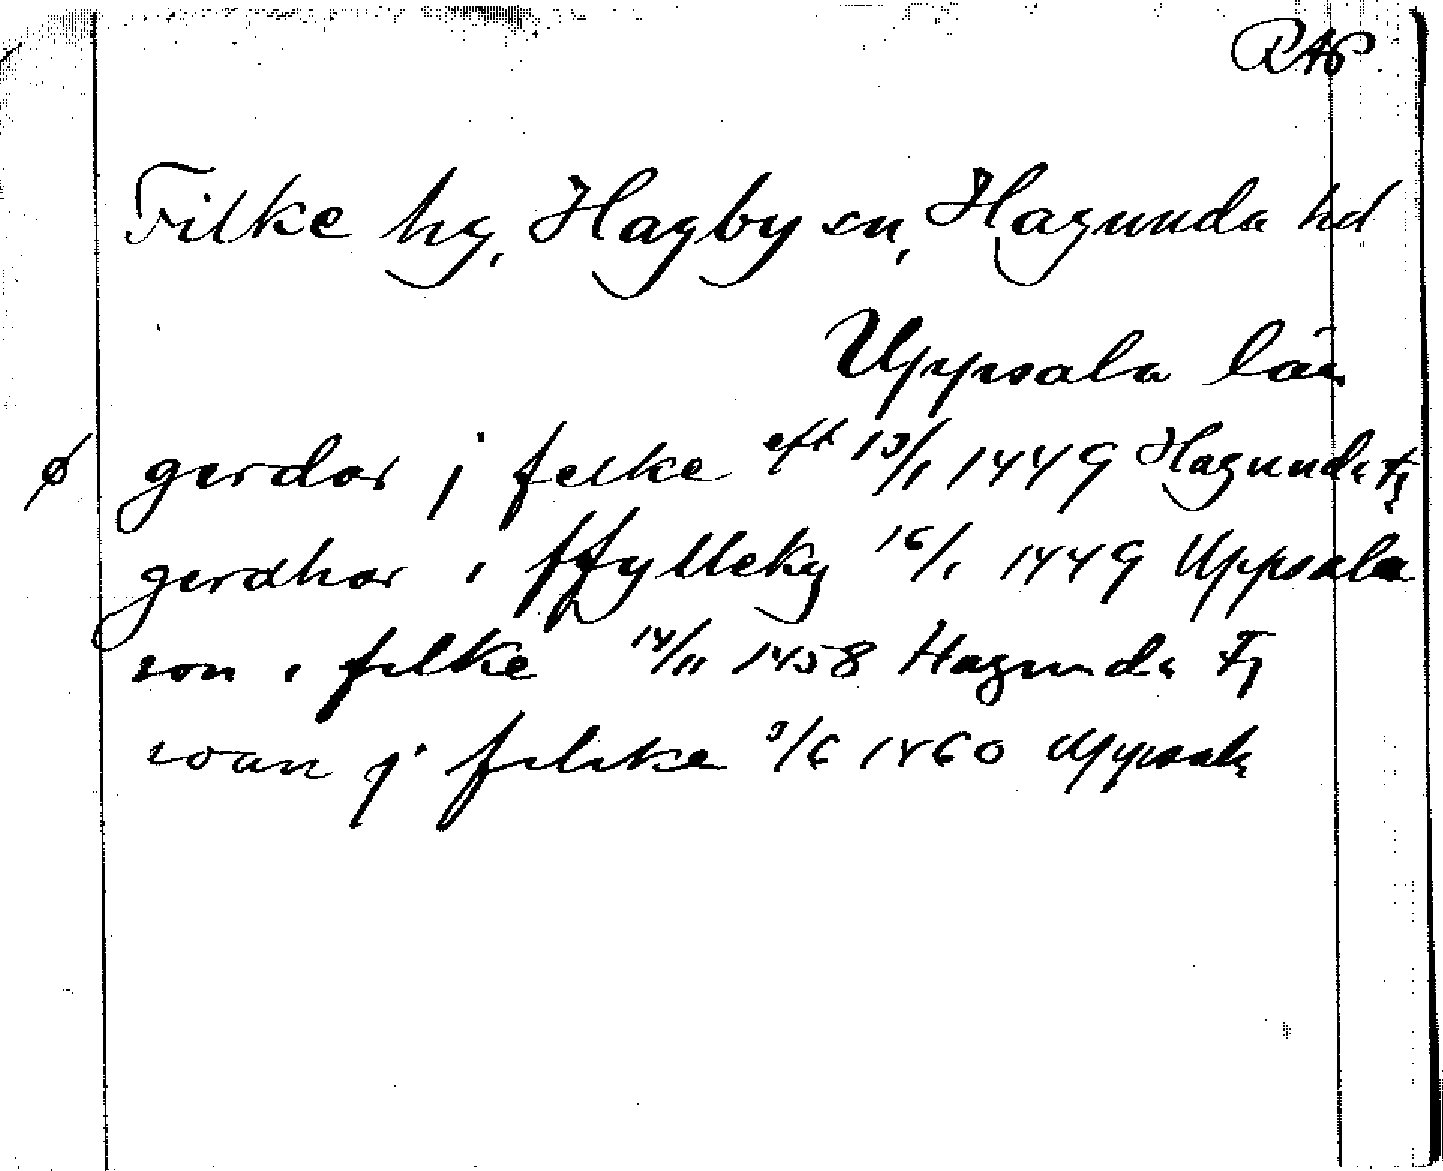 RAP
Filke by, Hagby sn, Hagunda hd
Uppsala län
ø gerdar j felke eft 13/1 1449 Hagunda Fj
gerdhar i ffylleky 16/1 1449 Uppsala
son i filke 14/11 1458 Hagunda Fj
soan j filike 3/6 1460 Uppsala